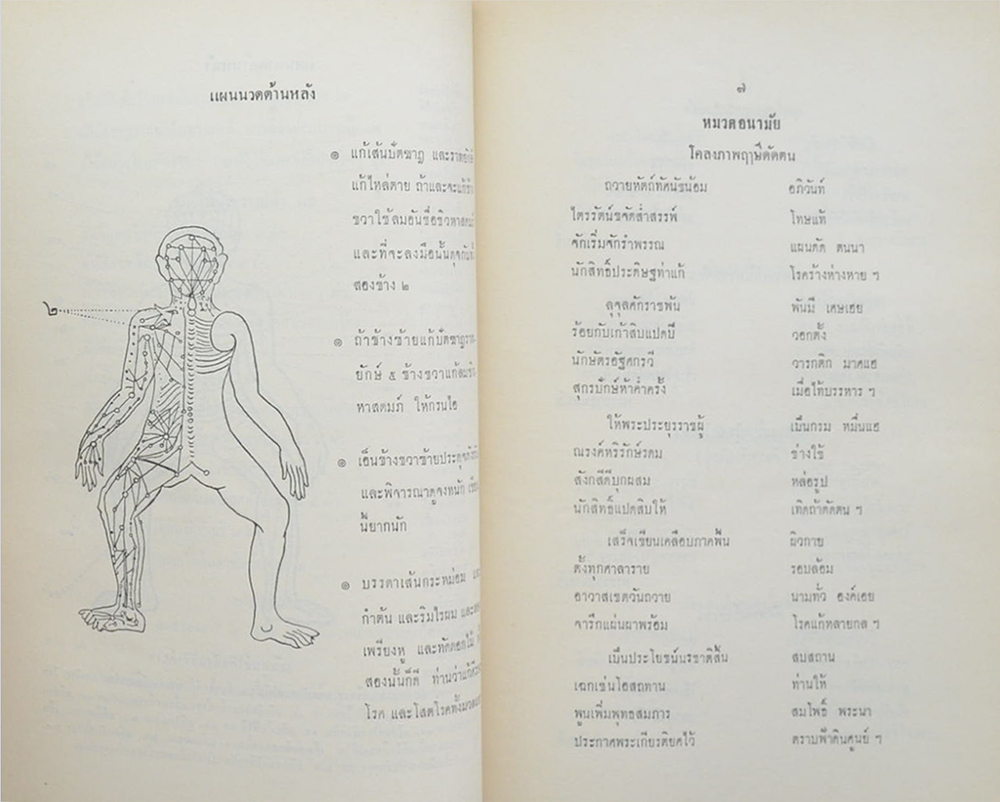 แผนนวดด้านหลัง
๏ แก้เส้นปัตฆาฏ และราตยักษ์
แก้ไหล่ตาย ถ้าและจะแก้ข้าง
ขวาใช้ลมอันชื่อชิวหาสดมภ์
และที่จะลงมือนั้นดุจกันทั้ง
สองข้าง ๒
๏ ถ้าข้างซ้ายแก้ปัตฆาฏราท
ยักษ์ ๕ ข้างขวาแก้ลมชิว
หาสดมภ์ ให้กรนไอ
๏ เอ็นข้างขวาซ้ายประดุจกัน
และพิจารณาดูจงหนัก
นี้ยากนัก
๏ บรรดาเส้นกระหม่อม
กำด้น และริมไรผม และ
เพรียงหู และทัดดอกไม้
สองนั้นก็ดี ท่านว่าแก้
โรค และโสตโรคทั้งมวล
๒
๗
หมวดอนามัย
โคลงภาพฤๅษีดัดตน
ถวายหัตถ์ทัศนัขน้อม อภิวันท์
ไตรรัตน์ขจัดส่ำสรรพ์ โทษแท้
จักเริ่มจักรำพรรณ แผนดัด ตนนา
นักสิทธิ์ประดิษฐท่าแก้ โรคร้างห่างหาย ฯ
ลุจุลศักราชพัน พันมี เศษเฮย
ร้อยกับเก้าสิบแปดปี วอกตั้ง
นักษัตรอัฐศกรวี วารกติก มาศแฮ
สุกรปักษ์ห้าค่ำครั้ง เมื่อไท้บรรหาร ฯ
ให้พระประยุรราชผู้ เป็นกรม หมื่นแฮ
ณรงค์หริรักษ์รดม ช่างใช้
สังกสีดีบุกผสม หล่อรูป
นักสิทธิ์แปดสิบให้ เทิดถ้าดัดตน ฯ
เสร็จเขียนเคลือบภาคพื้น ผิวกาย
ตั้งทุกศาลาราย รอบล้อม
อาวาสเชตวันถวาย นามทั่ว องค์เฮย
จารึกแผ่นผาพร้อม โรคแก้หลายกล ฯ
เป็นประโยชน์นรชาติสิ้น สบสถาน
เฉกเช่นโอสถทาน ท่านให้
พูนเพิ่มพุทธสมภาร สมโพธิ์ พระนา
ประกาศพระเกียรติยศไว้ ตราบฟ้าดินศูนย์ ฯ